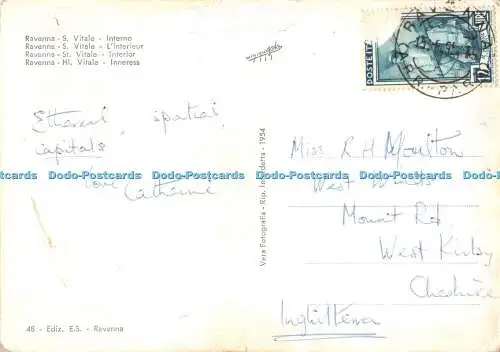 Ravenna - S. Vitale - Interno
Ravenna - S. Vitale - L'Interieur
Ravenna - St. Vitale - Interior
Ravenna - Hl. Vitale - Inneress
POSTE ITA
Ethereal spatial
capitals
love Catherine
Vera Fotografia - Rip. Interdetta - 1954
Miss R H Moulton
West Winds
Mount Rd.
West Kirby
Cheshire
Inghilterra
48 - Ediz. E.S. - Ravenna
Dodo-Postcards Dodo-Postcards Dodo-Postcards Dodo-Postcards